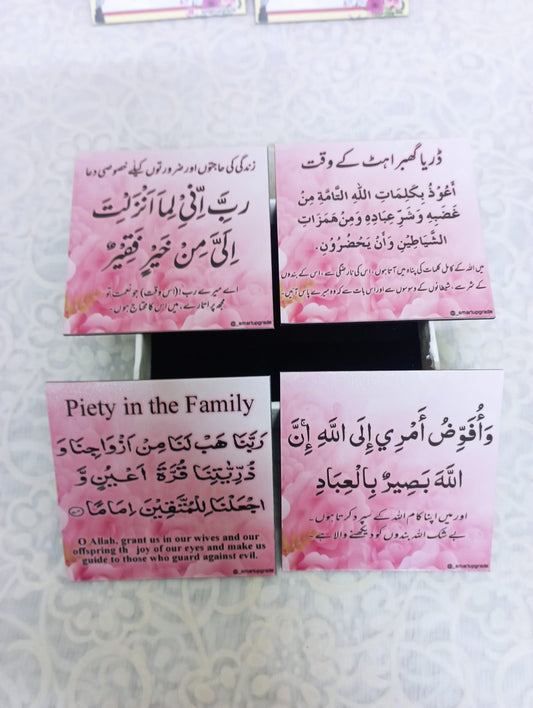 زندگی کی حاجتوں اور ضرورتوں کیلئے خصوصی دعا
رَبِّ اِنِّیْ لِمَاۤ اَنْزَلْتَ
اِلَیَّ مِنْ خَیْرٍ فَقِیْرٌ
اے میرے رب! (اس وقت) جو نعمت تو
مجھ پر اتارے، میں اس کا محتاج ہوں۔
@_smartupgrade
ڈر یا گھبراہٹ کے وقت
أَعُوْذُ بِكَلِمَاتِ اللّٰهِ التَّامَّةِ مِنْ
غَضَبِهٖ وَشَرِّ عِبَادِهٖ وَمِنْ هَمَزَاتِ
الشَّيَاطِيْنِ وَأَنْ يَحْضُرُوْنِ.
میں اللہ کے کامل کلمات کی پناہ میں آتا ہوں، اس کی ناراضگی سے، اس کے بندوں
کے شر سے، شیطانوں کے وسوسوں سے اور اس بات سے کہ وہ میرے پاس آئیں۔
@_smartupgrade
Piety in the Family
رَبَّنَا هَبْ لَنَا مِنْ اَزْوَاجِنَا وَ
ذُرِّيّٰتِنَا قُرَّةَ اَعْيُنٍ وَّ
اجْعَلْنَا لِلْمُتَّقِيْنَ اِمَامًا
O Allah, grant us in our wives and our
offspring th joy of our eyes and make us
guide to those who guard against evil.
@_smartupgrade
وَأُفَوِّضُ أَمْرِي إِلَى اللَّهِ إِنَّ
اللَّهَ بَصِيرٌ بِالْعِبَادِ
اور میں اپنا کام اللہ کے سپرد کرتا ہوں۔
بے شک اللہ بندوں کو دیکھنے والا ہے۔
@_smartupgrade